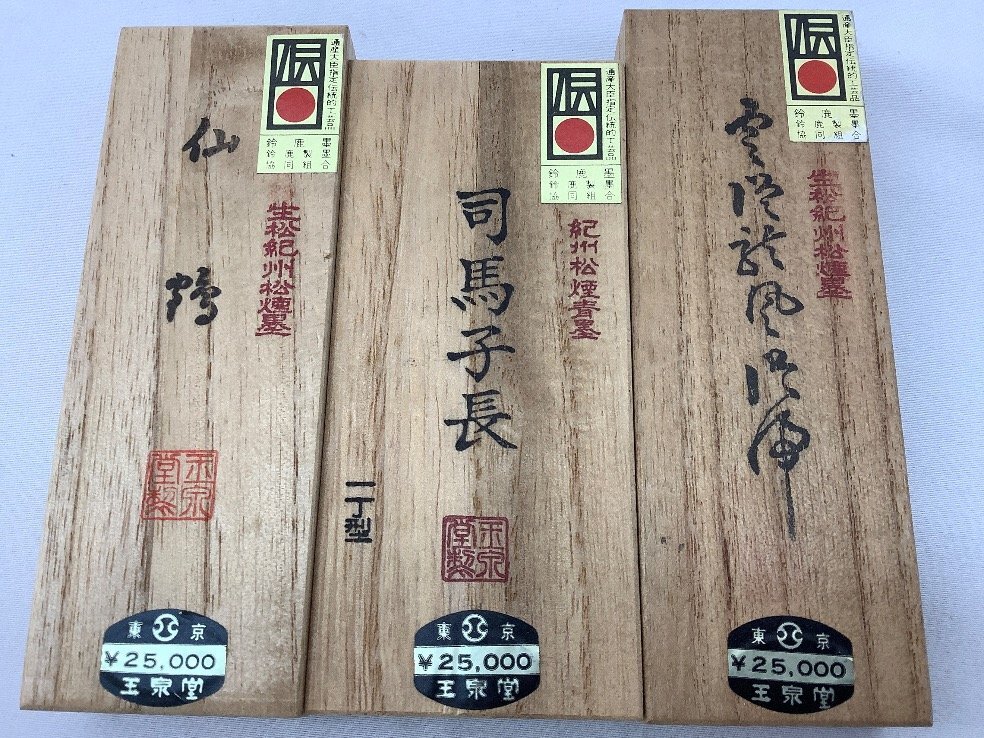 仙鶴
生松紀州松煙墨
玉泉堂製
伝
通産大臣指定伝統的工芸品
鈴鹿墨
鈴鹿製墨
協同組合
東京
¥25,000
玉泉堂
司馬子長
紀州松煙青墨
一丁型
玉泉堂製
伝
通産大臣指定伝統的工芸品
鈴鹿墨
鈴鹿製墨
協同組合
東京
¥25,000
玉泉堂
雲従龍風従虎
生松紀州松煙墨
伝
通産大臣指定伝統的工芸品
鈴鹿墨
鈴鹿製墨
協同組合
東京
¥25,000
玉泉堂